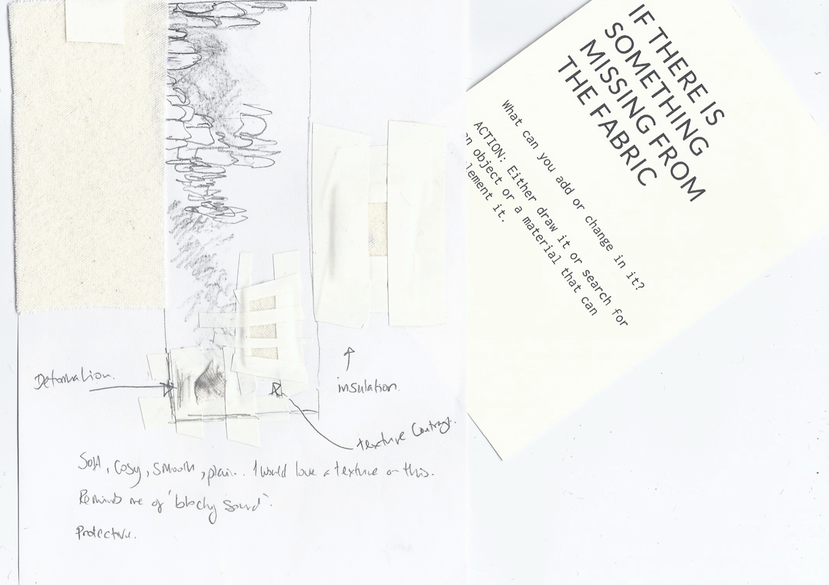 IF THERE IS
SOMETHING
MISSING FROM
THE FABRIC
What can you add or change in it?
ACTION: Either draw it or search for
n object or a material that can
lement it.
Deformation.
insulation.
texture Contrast.
Soft, Cosy, smooth, plain. I would love a texture on this.
Reminds me of 'blocky sound'.
Protective.